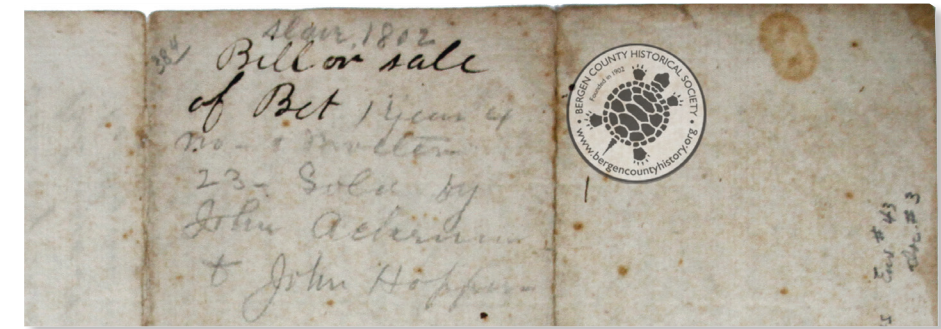 384
Slave, 1802
Bill or sale
of Bet 1 Year &
mo. & Mulatto
23- Sold by
John Ackerman
to John Hopper
BERGEN COUNTY HISTORICAL SOCIETY
Founded in 1902
www.bergencountyhistory.org
Env # 43
Doc. # 3